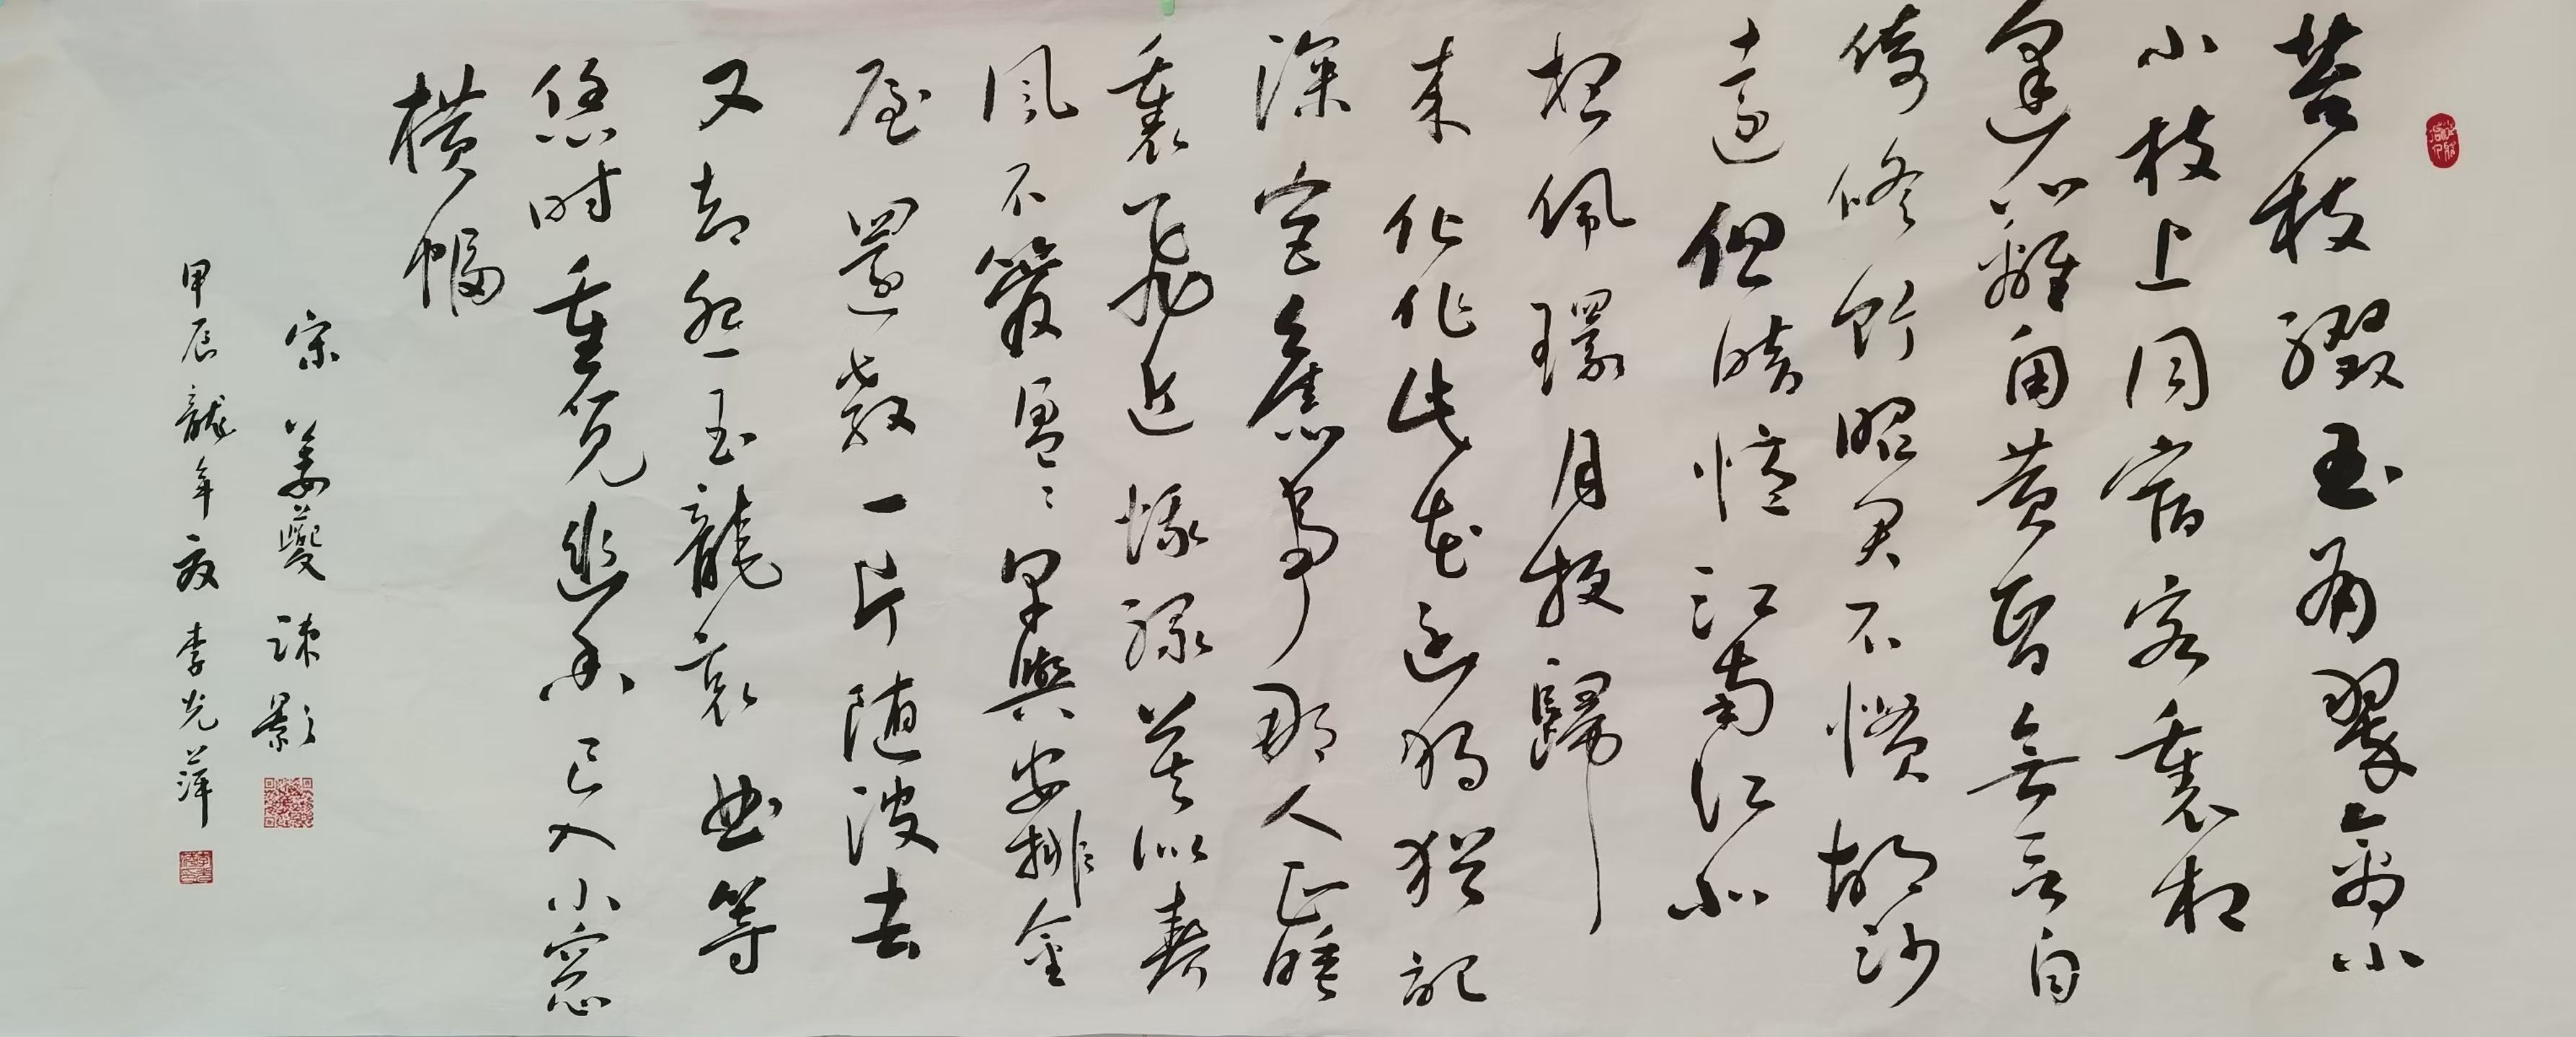 苔枝綴玉有翠禽小
小枝上同宿客裏相
逢籬角黄昏無言自
倚修竹昭君不慣胡沙
遠但暗憶江南江北
想佩環月夜歸
來化作此花幽獨猶記
深宫舊事那人正睡
裏飛近蛾綠莫似春
風不管盈々早與安排金
屋還教一片随波去
又却怨玉龍哀曲等
恁时重覓幽香已入小窓
橫幅
宋 姜夔 疎影
甲辰龍年夏 李光萍